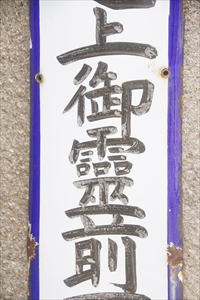 上御靈前